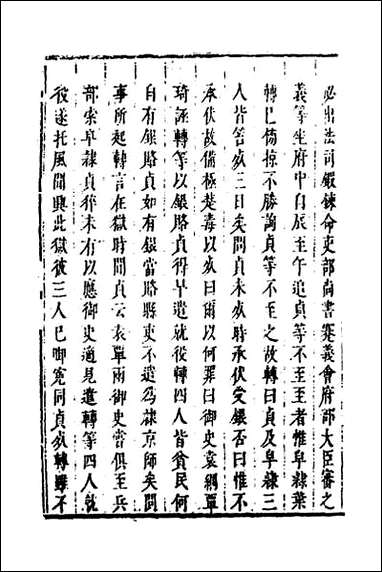 必出法司鍛鍊命吏部尚書蹇義會府部大臣審之
義等坐府中自辰至午追貞等不至至者惟皁隸葉
轉巳傷掠不勝詢貞等不至之故轉曰貞及皁隸三
人皆笞死三日矣問貞未死時承伏受銀否曰惟不
承伏故備極楚毒以死曰爾以何罪曰御史袁綱覃
琦誣轉等以銀賂貞得早遣就役轉四人皆貧民何
自有銀賂貞如有銀當賂縣吏不遣為隸京師矣問
事所起轉言在獄時聞貞云袁覃兩御史嘗俱至兵
部索皁隸貞猝未有以應御史適見遣轉等四人就
役遂托風聞興此獄彼三人巳啣寃同貞死轉雖不